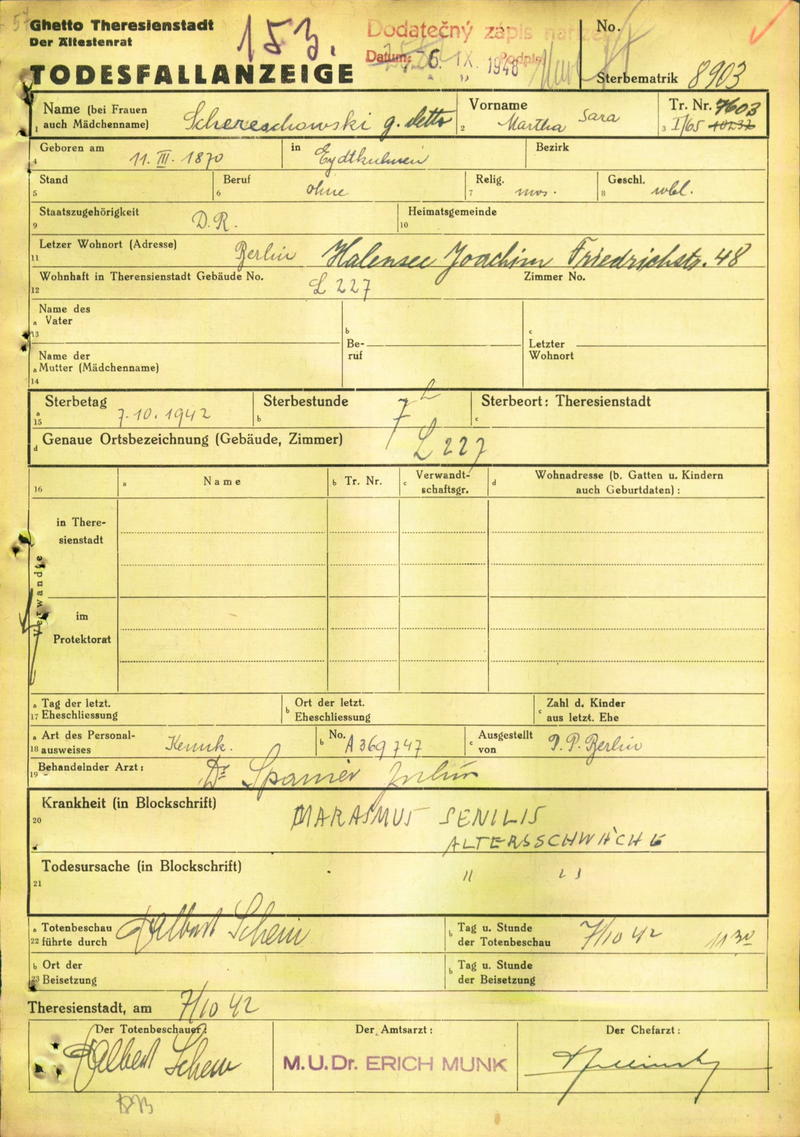 Ghetto Theresienstadt
Der Ältestenrat
153.
Dodatečný zápis
Datum: 6. IX. 1948 Podpis
No.
TODESFALLANZEIGE
Sterbematrik 8903
Name (bei Frauen auch Mädchenname) Schereschowski g. detto
1
Vorname Martha Sara
2
Tr. Nr. 7603
3 I/65
4 Geboren am 11. III. 1870
in Eydtkuhnen
Bezirk
Stand
5
Beruf ohne
6
Relig. mos.
7
Geschl. wbl.
8
Staatszugehörigkeit D.R.
9
Heimatsgemeinde
10
Letzer Wohnort (Adresse) Berlin Halensee Joachim Friedrichstr. 48
11
Wohnhaft in Therensienstadt Gebäude No. L 227
Zimmer No.
12
Name des
a Vater
13
Name der
a Mutter (Mädchenname)
14
b
Be-
ruf
c
Letzter
Wohnort
Sterbetag 7.10.1942
a
15
Sterbestunde 7 h
b
Sterbeort: Theresienstadt
c
d Genaue Ortsbezeichnung (Gebäude, Zimmer) L 227
16
a Name
b Tr. Nr.
c Verwandt-
schaftsgr.
d Wohnadresse (b. Gatten u. Kindern
auch Geburtdaten) :
Verwandte
in There-
sienstadt
im
Protektorat
a Tag der letzt.
17 Eheschliessung
b Ort der letzt.
Eheschliessung
c Zahl d. Kinder
aus letzt. Ehe
a Art des Personal-
18 ausweises Kennk.
b No. A 369747
c Ausgestellt
von P.P. Berlin
19 Behandelnder Arzt: Dr Spanier Julius
Krankheit (in Blockschrift) MARASMUS SENILIS
20
ALTERSSCHWÄCHE
Todesursache (in Blockschrift) " "
21
a Totenbeschau
22 führte durch Albert Schein
b Tag u. Stunde
der Totenbeschau 7/10 42 11 30
b Ort der
23 Beisetzung
b Tag u. Stunde
der Beisetzung
Theresienstadt, am 7/10 42
Der Totenbeschauer:
Albert Schein
Der Amtsarzt:
M.U.Dr. ERICH MUNK
Der Chefarzt: